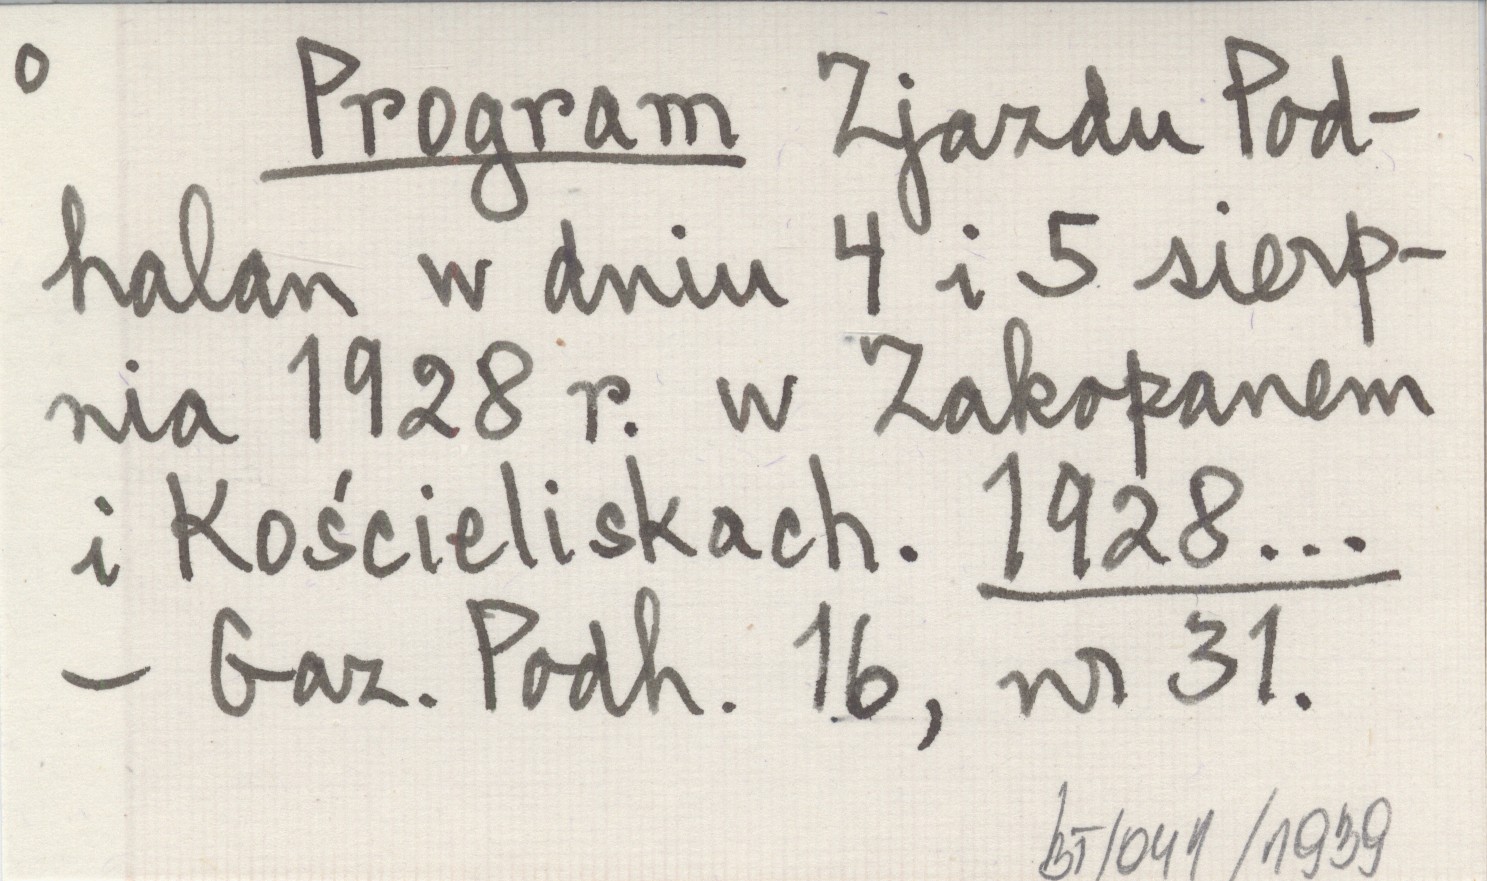 o Program Zjazdu Pod-
halan w dniu 4 i 5 sierp-
nia 1928 r. w Zakopanem
i Kościeliskach. 1928...
– Gaz. Podh. 16, nr 31.
/1939